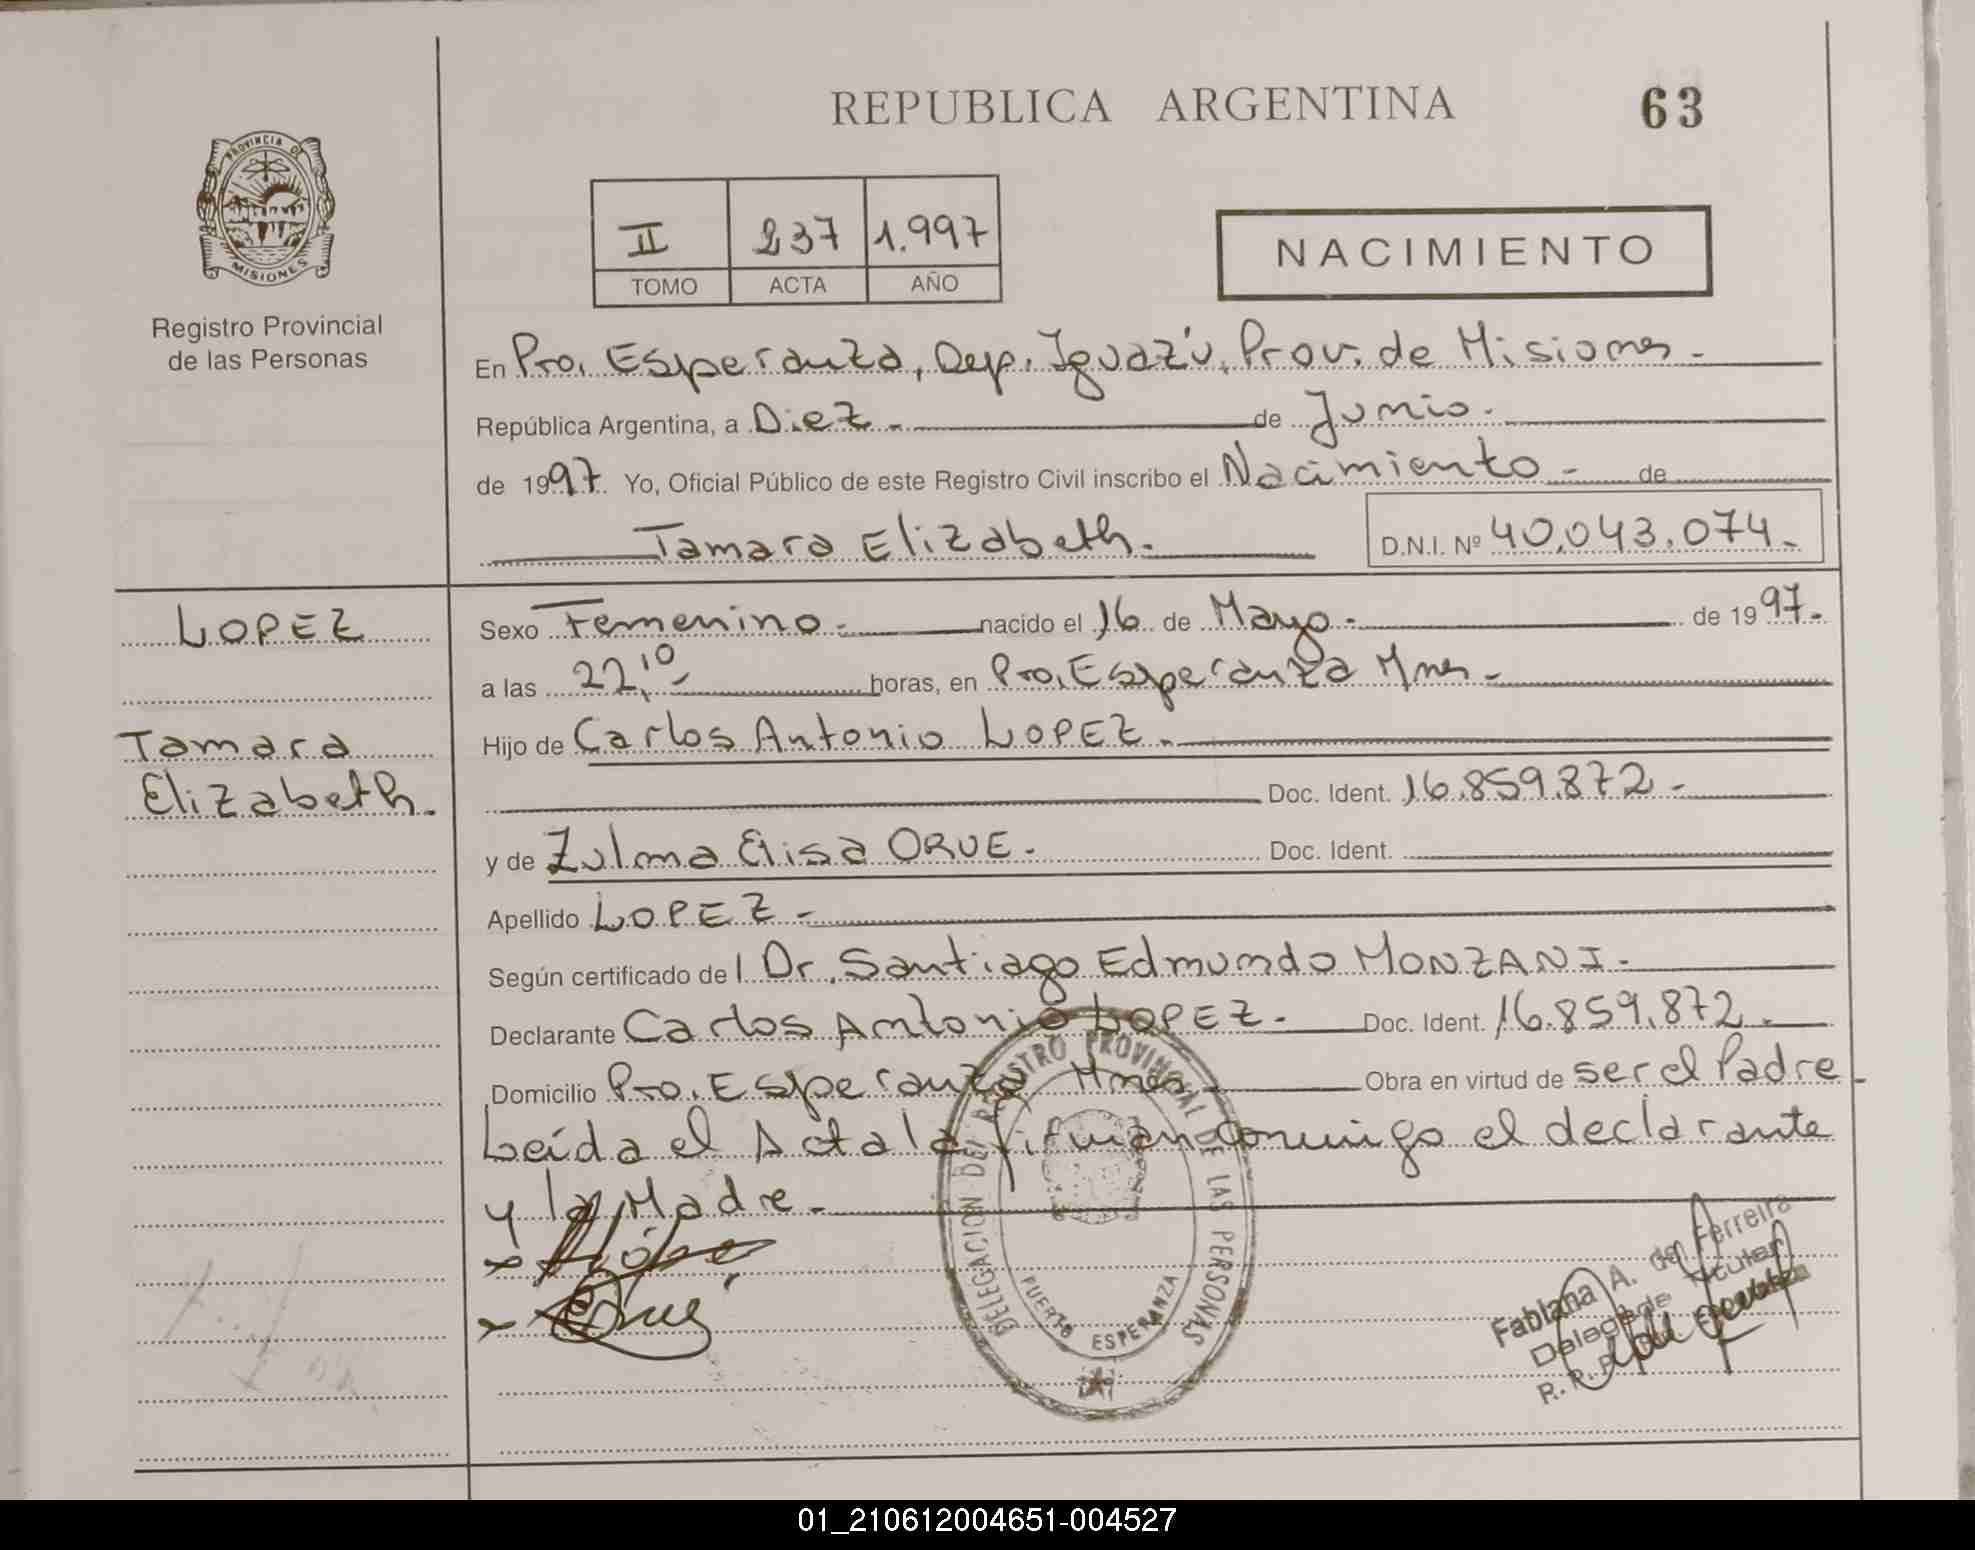 REPUBLICA ARGENTINA
63
PROVINCIA DE
MISIONES
Registro Provincial
de las Personas
II 237 1.997
TOMO ACTA AÑO
NACIMIENTO
En Pto. Esperanza, Dep. Iguazú, Prov. de Misiones -
República Argentina, a Diez - de Junio -
de 1997. Yo, Oficial Público de este Registro Civil inscribo el Nacimiento - de
Tamara Elizabeth.
D.N.I. Nº 40.043.074.-
LOPEZ
Tamara
Elizabeth.
Sexo Femenino - nacido el 16 de Mayo - de 1997.-
a las 22,10 - horas, en Pto. Esperanza Mnes -
Hijo de Carlos Antonio LOPEZ -
Doc. Ident. 16.859.872 -
y de Zulma Elisa ORUE - Doc. Ident.
Apellido LOPEZ -
Según certificado de l Dr. Santiago Edmundo MONZANI -
Declarante Carlos Antonio LOPEZ - Doc. Ident. 16.859.872 -
Domicilio Pto. Esperanza Mnes - Obra en virtud de ser el Padre -
Leída el Acta la firman conmigo el declarante
y la Madre -
DELEGACION DEL REGISTRO PROVINCIAL DE LAS PERSONAS
PUERTO ESPERANZA
Fabiana A. de Ferreira
Delegada Titular
01_210612004651-004527